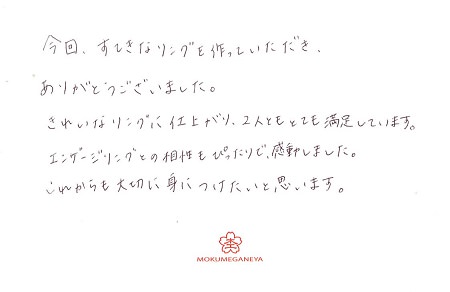 今回、すてきなリングを作っていただき、
ありがとうございました。
きれいなリングに仕上がり、2人ともとても満足しています。
エンゲージリングとの相性もぴったりで、感動しました。
これからも大切に身につけたいと思います。
MOKUMEGANEYA